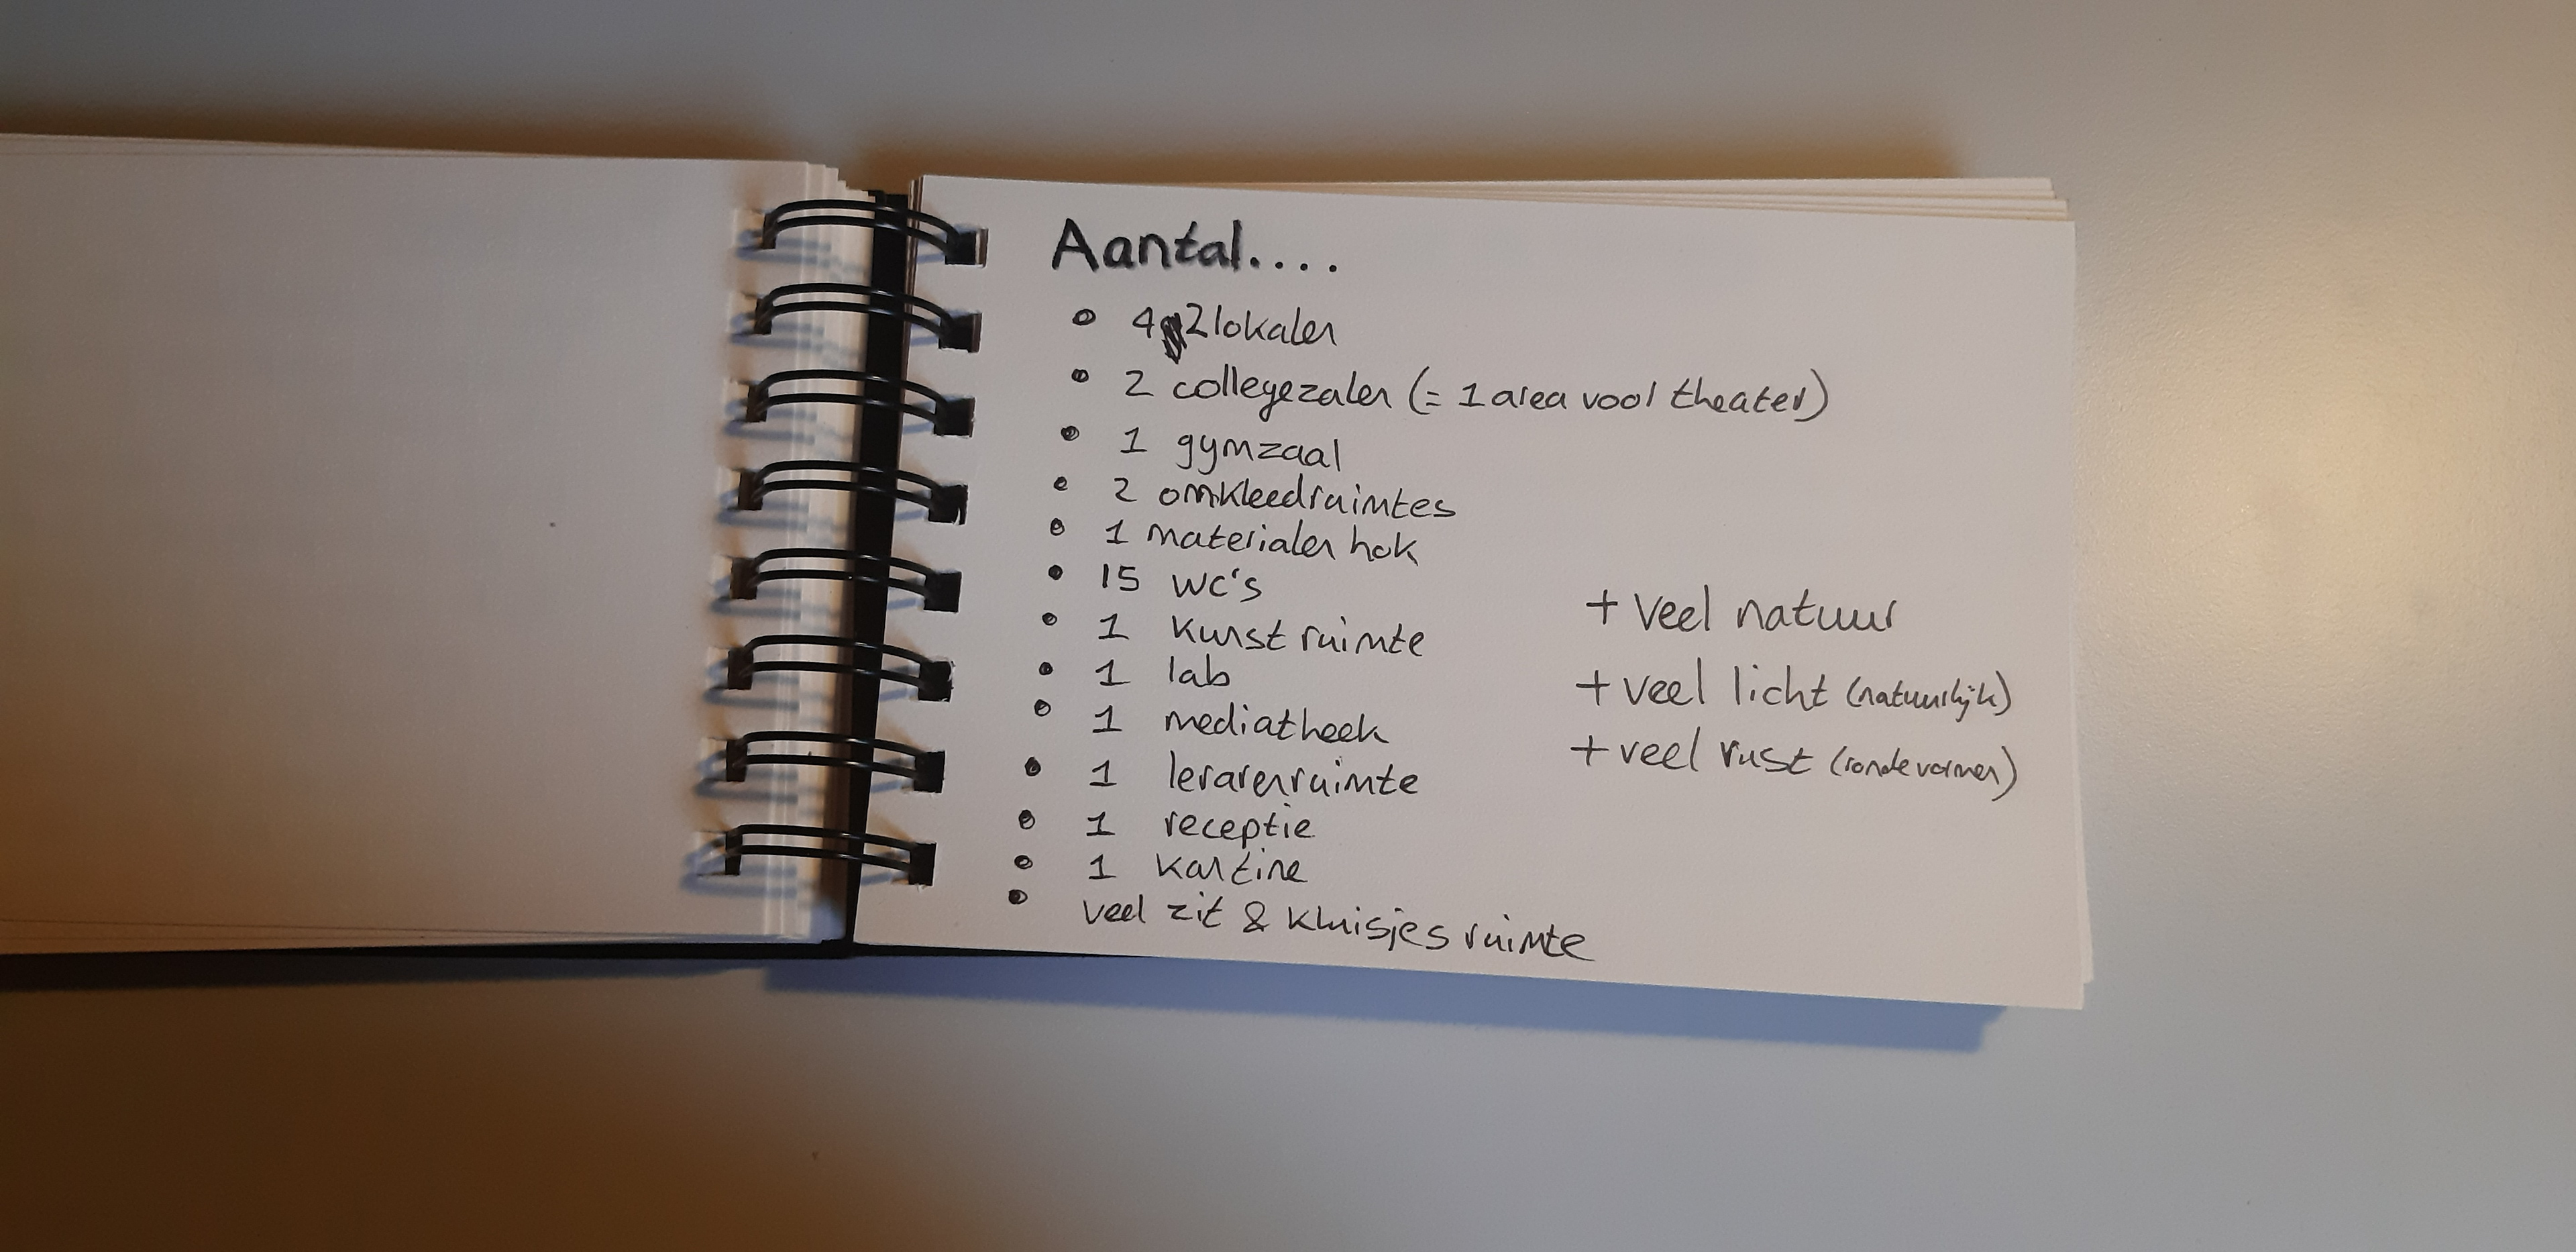 Aantal....
• 42 lokalen
• 2 collegezalen (= 1 area voor theater)
• 1 gymzaal
• 2 omkleedruimtes
• 1 materialen hok
• 15 wc's
• 1 kunst ruimte
• 1 lab
• 1 mediatheek
• 1 lerarenruimte
• 1 receptie
• 1 kantine
• veel zit & kluisjes ruimte
+ veel natuur
+ veel licht (natuurlijk)
+ veel rust (ronde vormen)